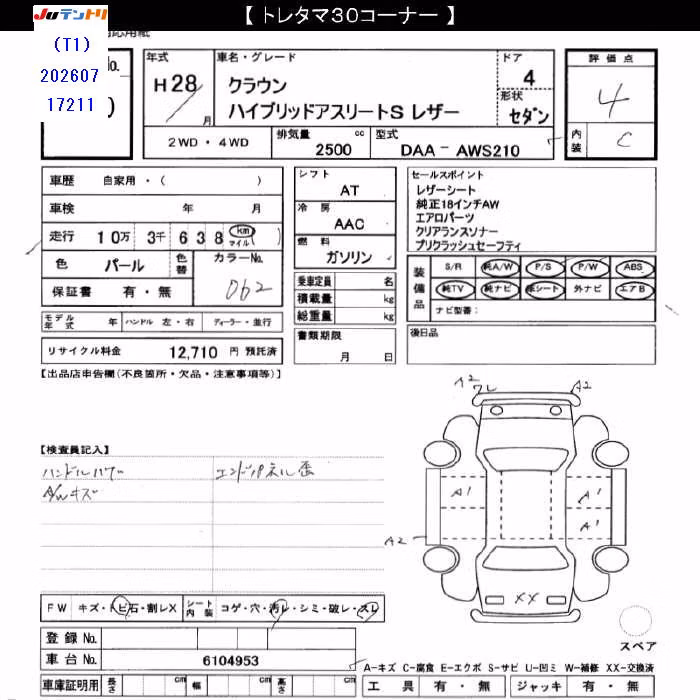 【 トレタマ30コーナー 】
JUテントリ
対応用紙
(T1)
202607
17211
No.
年式
H28
月
車名・グレード
クラウン
ハイブリッドアスリートS レザー
ドア
4
形状
セダン
評価点
4
内装
C
2WD・4WD
排気量
2500 cc
型式
DAA - AWS210
車歴 自家用・( )
車検 年 月
走行 10万 3千 638 km マイル ( )
色 パール 色替 カラーNo. 062
保証書 有・無
モデル年式 年 ハンドル 左・右 ディーラー・並行
リサイクル料金 12,710 円 預託済
シフト
AT
冷房
AAC
燃料
ガソリン
乗車定員 名
積載量 kg
総重量 kg
書類期限
月 日
セールスポイント
レザーシート
純正18インチAW
エアロパーツ
クリアランスソナー
プリクラッシュセーフティ
装備品
S/R 純A/W P/S P/W ABS
純TV 純ナビ 革シート 外ナビ エアB
ナビ型番:
後日品
【出品店申告欄(不良箇所・欠品・注意事項等)】
【検査員記入】
ハンドルハゲ エンドパネル歪
A/Wキズ
A2
フレ
A2
A1
A1
A1
A2
XX
スペア
FW キズ・トビ石・割レX シート内装 コゲ・穴・汚レ・シミ・破レ・スレ
登録No.
車台No. 6104953
A-キズ C-腐食 E-エクボ S-サビ U-凹ミ W-補修 XX-交換済
車庫証明用 長さ cm 幅 cm 高さ cm
工具 有・無 ジャッキ 有・無